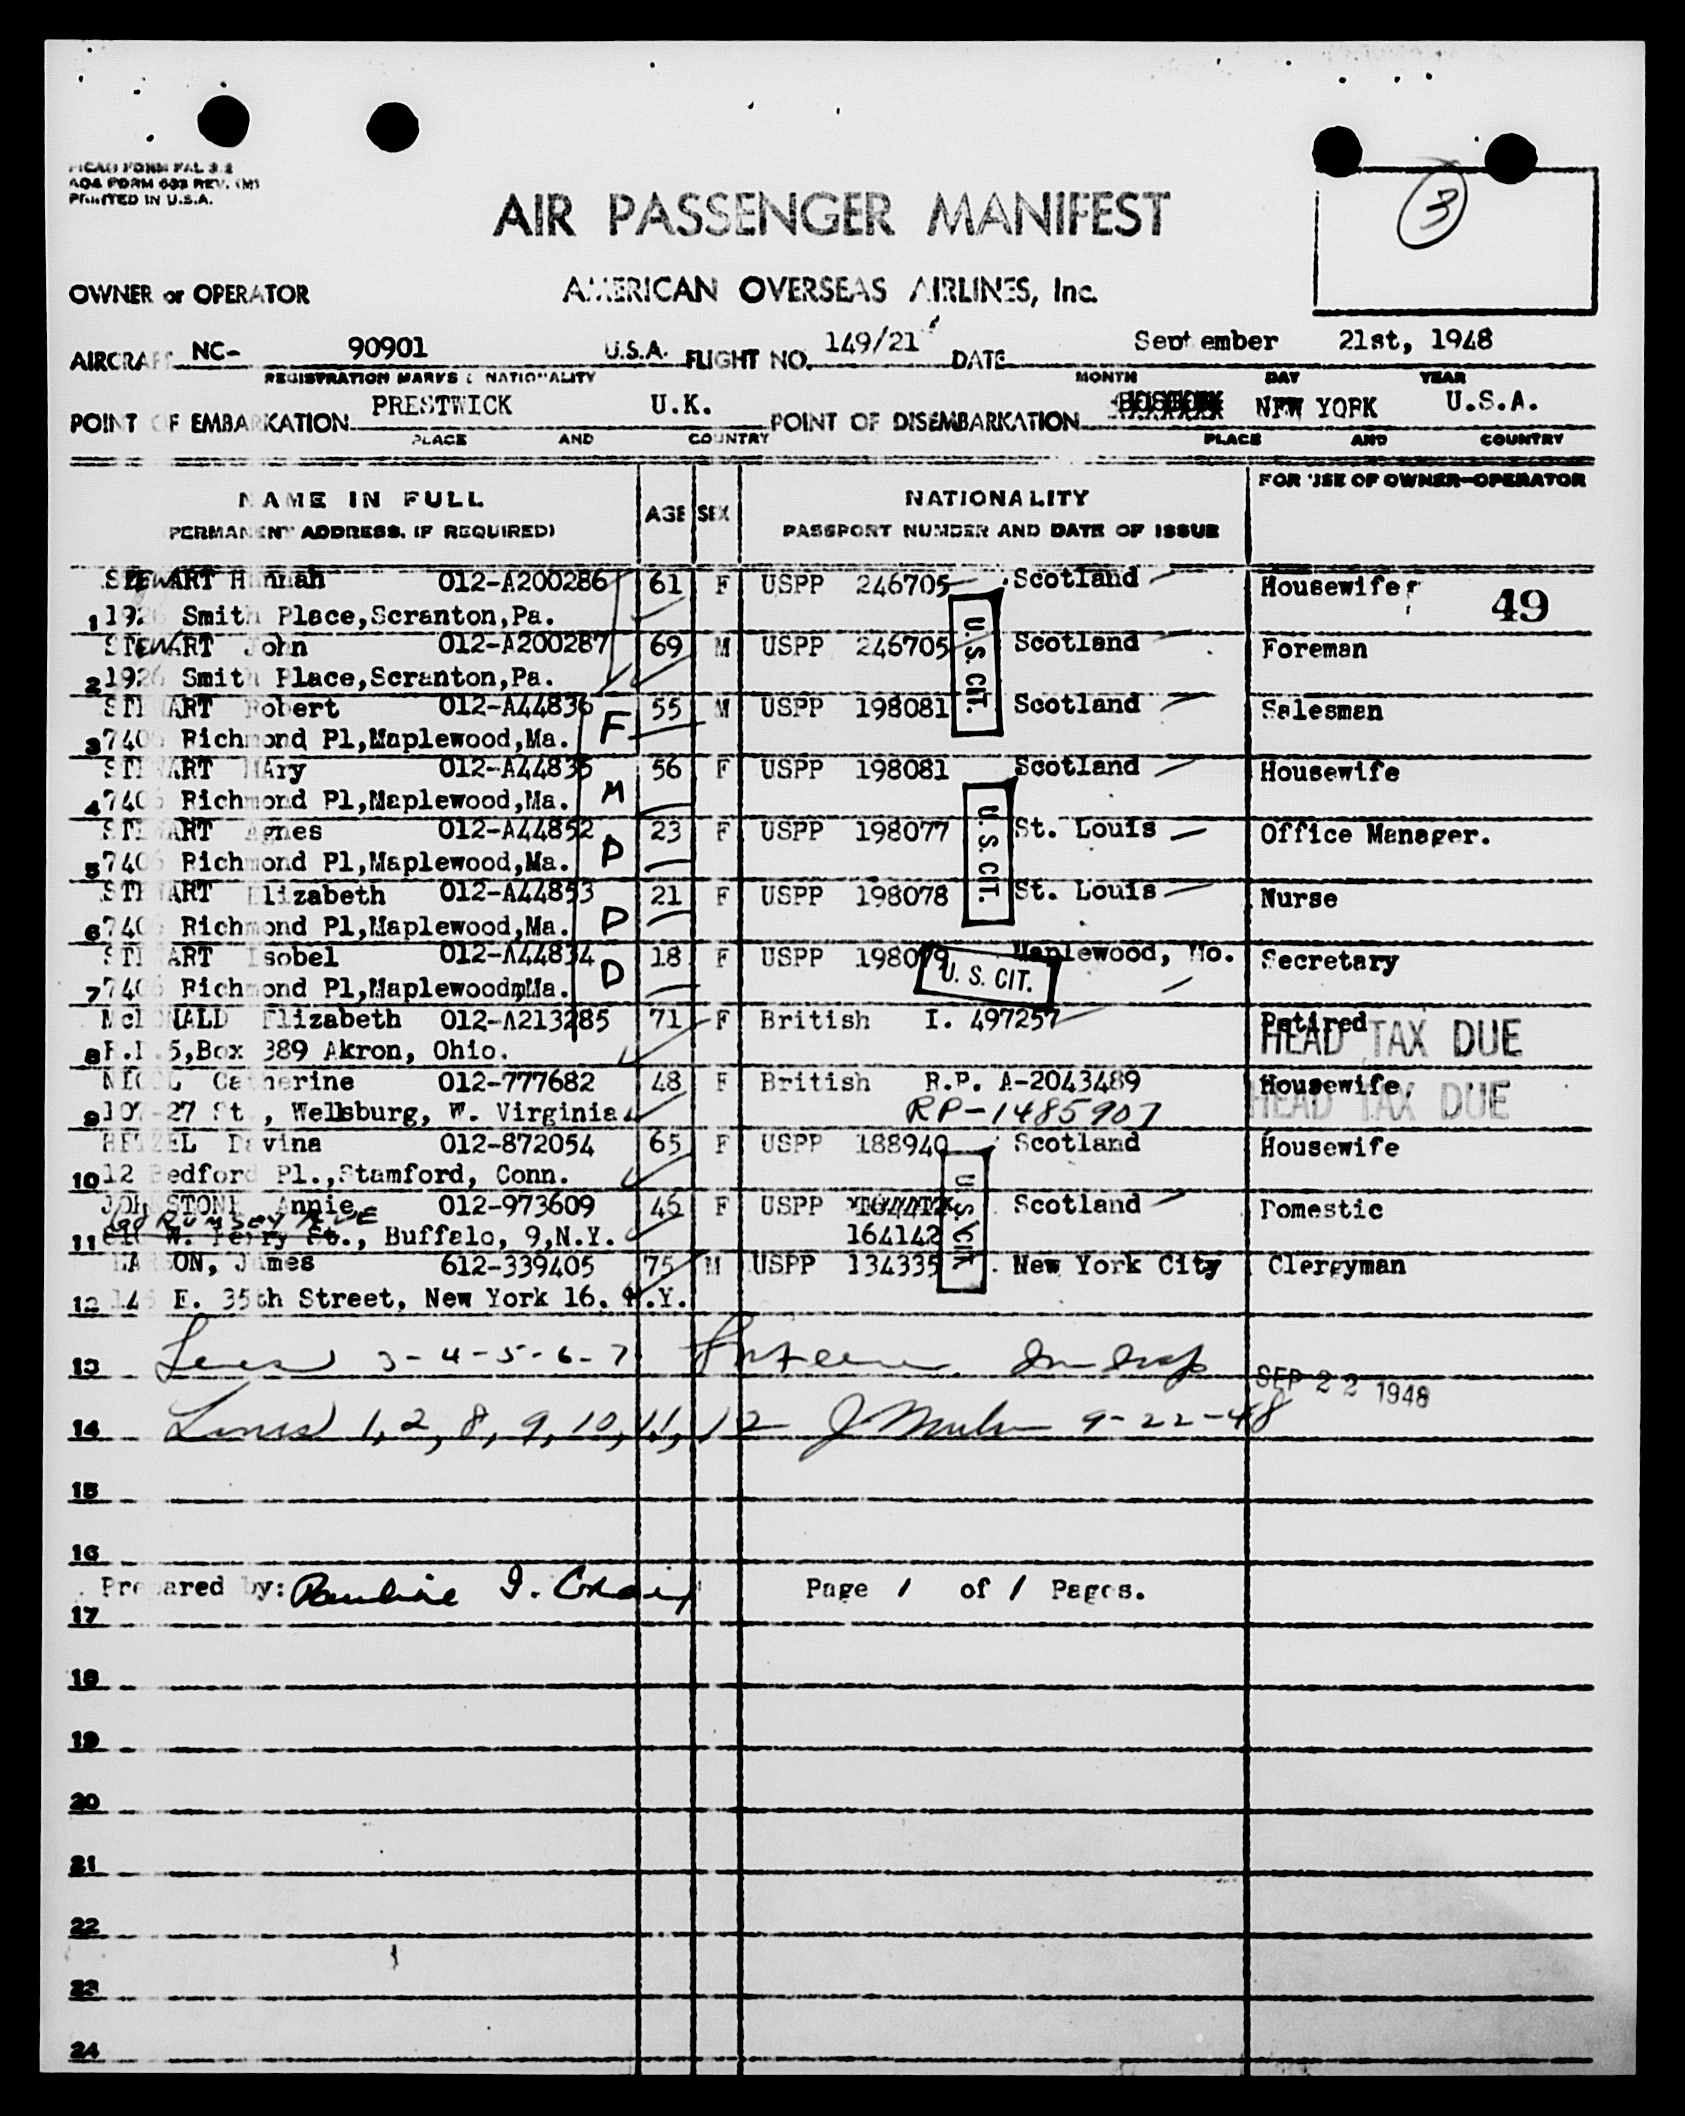 ICAO FORM FAL 3.2
AOA FORM 633 REV. (M)
PRINTED IN U.S.A.
3
AIR PASSENGER MANIFEST
OWNER or OPERATOR AMERICAN OVERSEAS AIRLINES, Inc.
AIRCRAFT NC- 90901 U.S.A. FLIGHT NO. 149/21 DATE September 21st, 1948
REGISTRATION MARKS & NATIONALITY MONTH DAY YEAR
POINT OF EMBARKATION PRESTWICK U.K. POINT OF DISEMBARKATION NEW YORK U.S.A.
PLACE AND COUNTRY PLACE AND COUNTRY
NAME IN FULL AGE SEX NATIONALITY FOR USE OF OWNER-OPERATOR
(PERMANENT ADDRESS, IF REQUIRED) PASSPORT NUMBER AND DATE OF ISSUE
STEWART Hannah 012-A200286 61 F USPP 246705 Scotland Housewife
1 1926 Smith Place,Scranton,Pa. 49
STEWART John 012-A200287 69 M USPP 246705 U.S. CIT. Scotland Foreman
2 1926 Smith Place,Scranton,Pa.
STEWART Robert 012-A44836 55 M USPP 198081 Scotland Salesman
3 7406 Richmond Pl,Maplewood,Ma. F
STEWART MAry 012-A44835 56 F USPP 198081 Scotland Housewife
4 7406 Richmond Pl,Maplewood,Ma. M
STEWART Agnes 012-A44852 23 F USPP 198077 U.S. CIT. St. Louis Office Manager.
5 7406 Richmond Pl,Maplewood,Ma. D
STEWART Elizabeth 012-A44853 21 F USPP 198078 St. Louis Nurse
6 7406 Richmond Pl,Maplewood,Ma. D
STEWART Isobel 012-A44834 18 F USPP 198079 Maplewood, Mo. Secretary
7 7406 Richmond Pl,Maplewood,Ma. D U. S. CIT.
McDONALD Elizabeth 012-A213285 71 F British I. 497257 Retired
8 R.D.5,Box 389 Akron, Ohio. HEAD TAX DUE
NICOL Catherine 012-777682 48 F British R.P. A-2043489 Housewife
9 107-27 St., Wellsburg, W. Virginia RP-1485907 HEAD TAX DUE
HETZEL Davina 012-872054 65 F USPP 188940 Scotland Housewife
10 12 Bedford Pl.,Stamford, Conn.
JOHNSTONE Annie 012-973609 46 F USPP U.S. CIT. Scotland Domestic
60 RUMSEY AVE
11 W. Perry St., Buffalo, 9,N.Y. 164142
LAWSON, James 612-339405 75 M USPP 134335 New York City Clergyman
12 145 E. 35th Street, New York 16. N.Y.
13 Lines 3-4-5-6-7 SEP 22 1948
14 Lines 1, 2, 8, 9, 10, 11, 12 9-22-48
15
16
Prepared by: Pauline I. Craig Page 1 of 1 Pages.
17
18
19
20
21
22
23
24